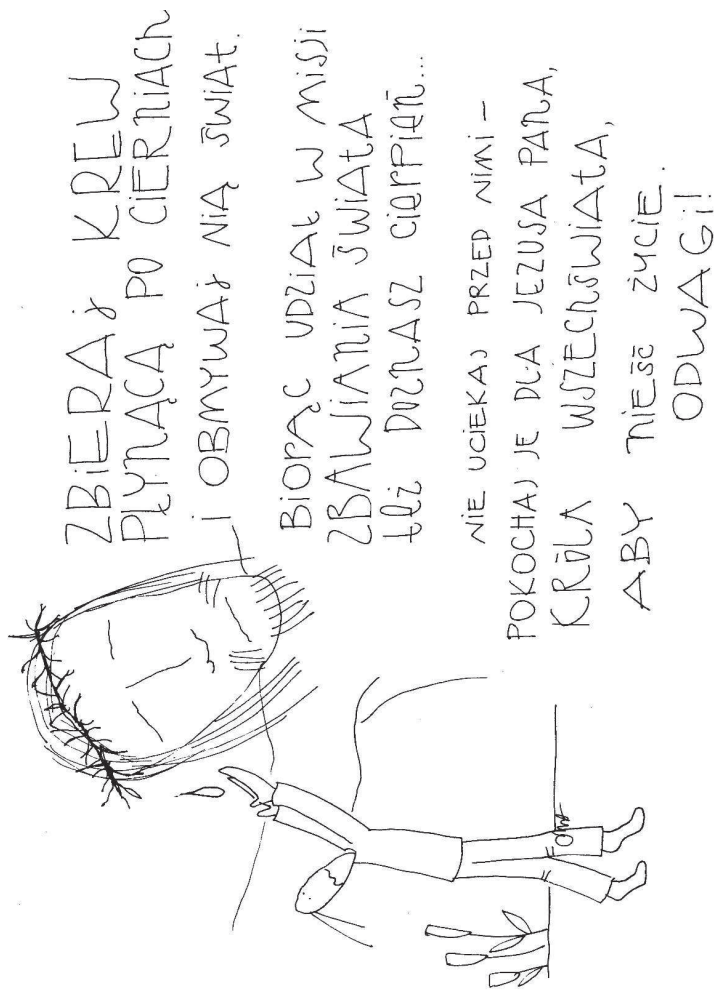 ZBIERAJ KREW
PŁYNĄCĄ PO CIERNIACH
i OBMYWAJ NIĄ ŚWIAT.
BIORĄC UDZIAŁ W MISJI
ZBAWIANIA ŚWIATA
też DOZNASZ CIERPIEŃ...
NIE UCIEKAJ PRZED NIMI -
POKOCHAJ JE DLA JEZUSA PANA,
KRÓLA WSZECHŚWIATA,
ABY NIEŚĆ ŻYCIE.
ODWAGI!